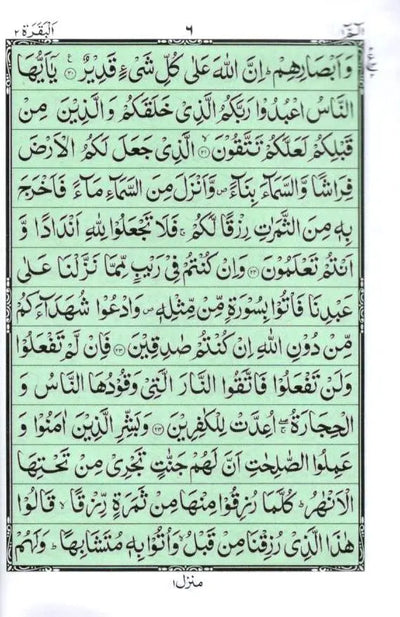 الٓمّٓ ١ ٦ اَلْبَقَرَة ٢
وَاَبْصَارِهِمْ ؕ اِنَّ اللّٰهَ عَلٰى كُلِّ شَیْءٍ قَدِیْرٌ ﴿۲۰﴾ یٰۤاَیُّهَا
النَّاسُ اعْبُدُوْا رَبَّكُمُ الَّذِیْ خَلَقَكُمْ وَالَّذِیْنَ مِنْ
قَبْلِكُمْ لَعَلَّكُمْ تَتَّقُوْنَ ﴿۲۱﴾ الَّذِیْ جَعَلَ لَكُمُ الْاَرْضَ
فِرَاشًا وَّالسَّمَآءَ بِنَآءً ۪ وَّاَنْزَلَ مِنَ السَّمَآءِ مَآءً فَاَخْرَجَ
بِهٖ مِنَ الثَّمَرٰتِ رِزْقًا لَّكُمْ ۚ فَلَا تَجْعَلُوْا لِلّٰهِ اَنْدَادًا وَّ
اَنْتُمْ تَعْلَمُوْنَ ﴿۲۲﴾ وَاِنْ كُنْتُمْ فِیْ رَیْبٍ مِّمَّا نَزَّلْنَا عَلٰى
عَبْدِنَا فَاْتُوْا بِسُوْرَةٍ مِّنْ مِّثْلِهٖ ۪ وَادْعُوْا شُهَدَآءَكُمْ
مِّنْ دُوْنِ اللّٰهِ اِنْ كُنْتُمْ صٰدِقِیْنَ ﴿۲۳﴾ فَاِنْ لَّمْ تَفْعَلُوْا
وَلَنْ تَفْعَلُوْا فَاتَّقُوا النَّارَ الَّتِیْ وَقُوْدُهَا النَّاسُ وَ
الْحِجَارَةُ ۖۚ اُعِدَّتْ لِلْكٰفِرِیْنَ ﴿۲۴﴾ وَبَشِّرِ الَّذِیْنَ اٰمَنُوْا وَ
عَمِلُوا الصّٰلِحٰتِ اَنَّ لَهُمْ جَنّٰتٍ تَجْرِیْ مِنْ تَحْتِهَا
الْاَنْهٰرُ ؕ كُلَّمَا رُزِقُوْا مِنْهَا مِنْ ثَمَرَةٍ رِّزْقًا ۙ قَالُوْا
هٰذَا الَّذِیْ رُزِقْنَا مِنْ قَبْلُ ۙ وَاُتُوْا بِهٖ مُتَشَابِهًا ؕ وَلَهُمْ
منزل ١